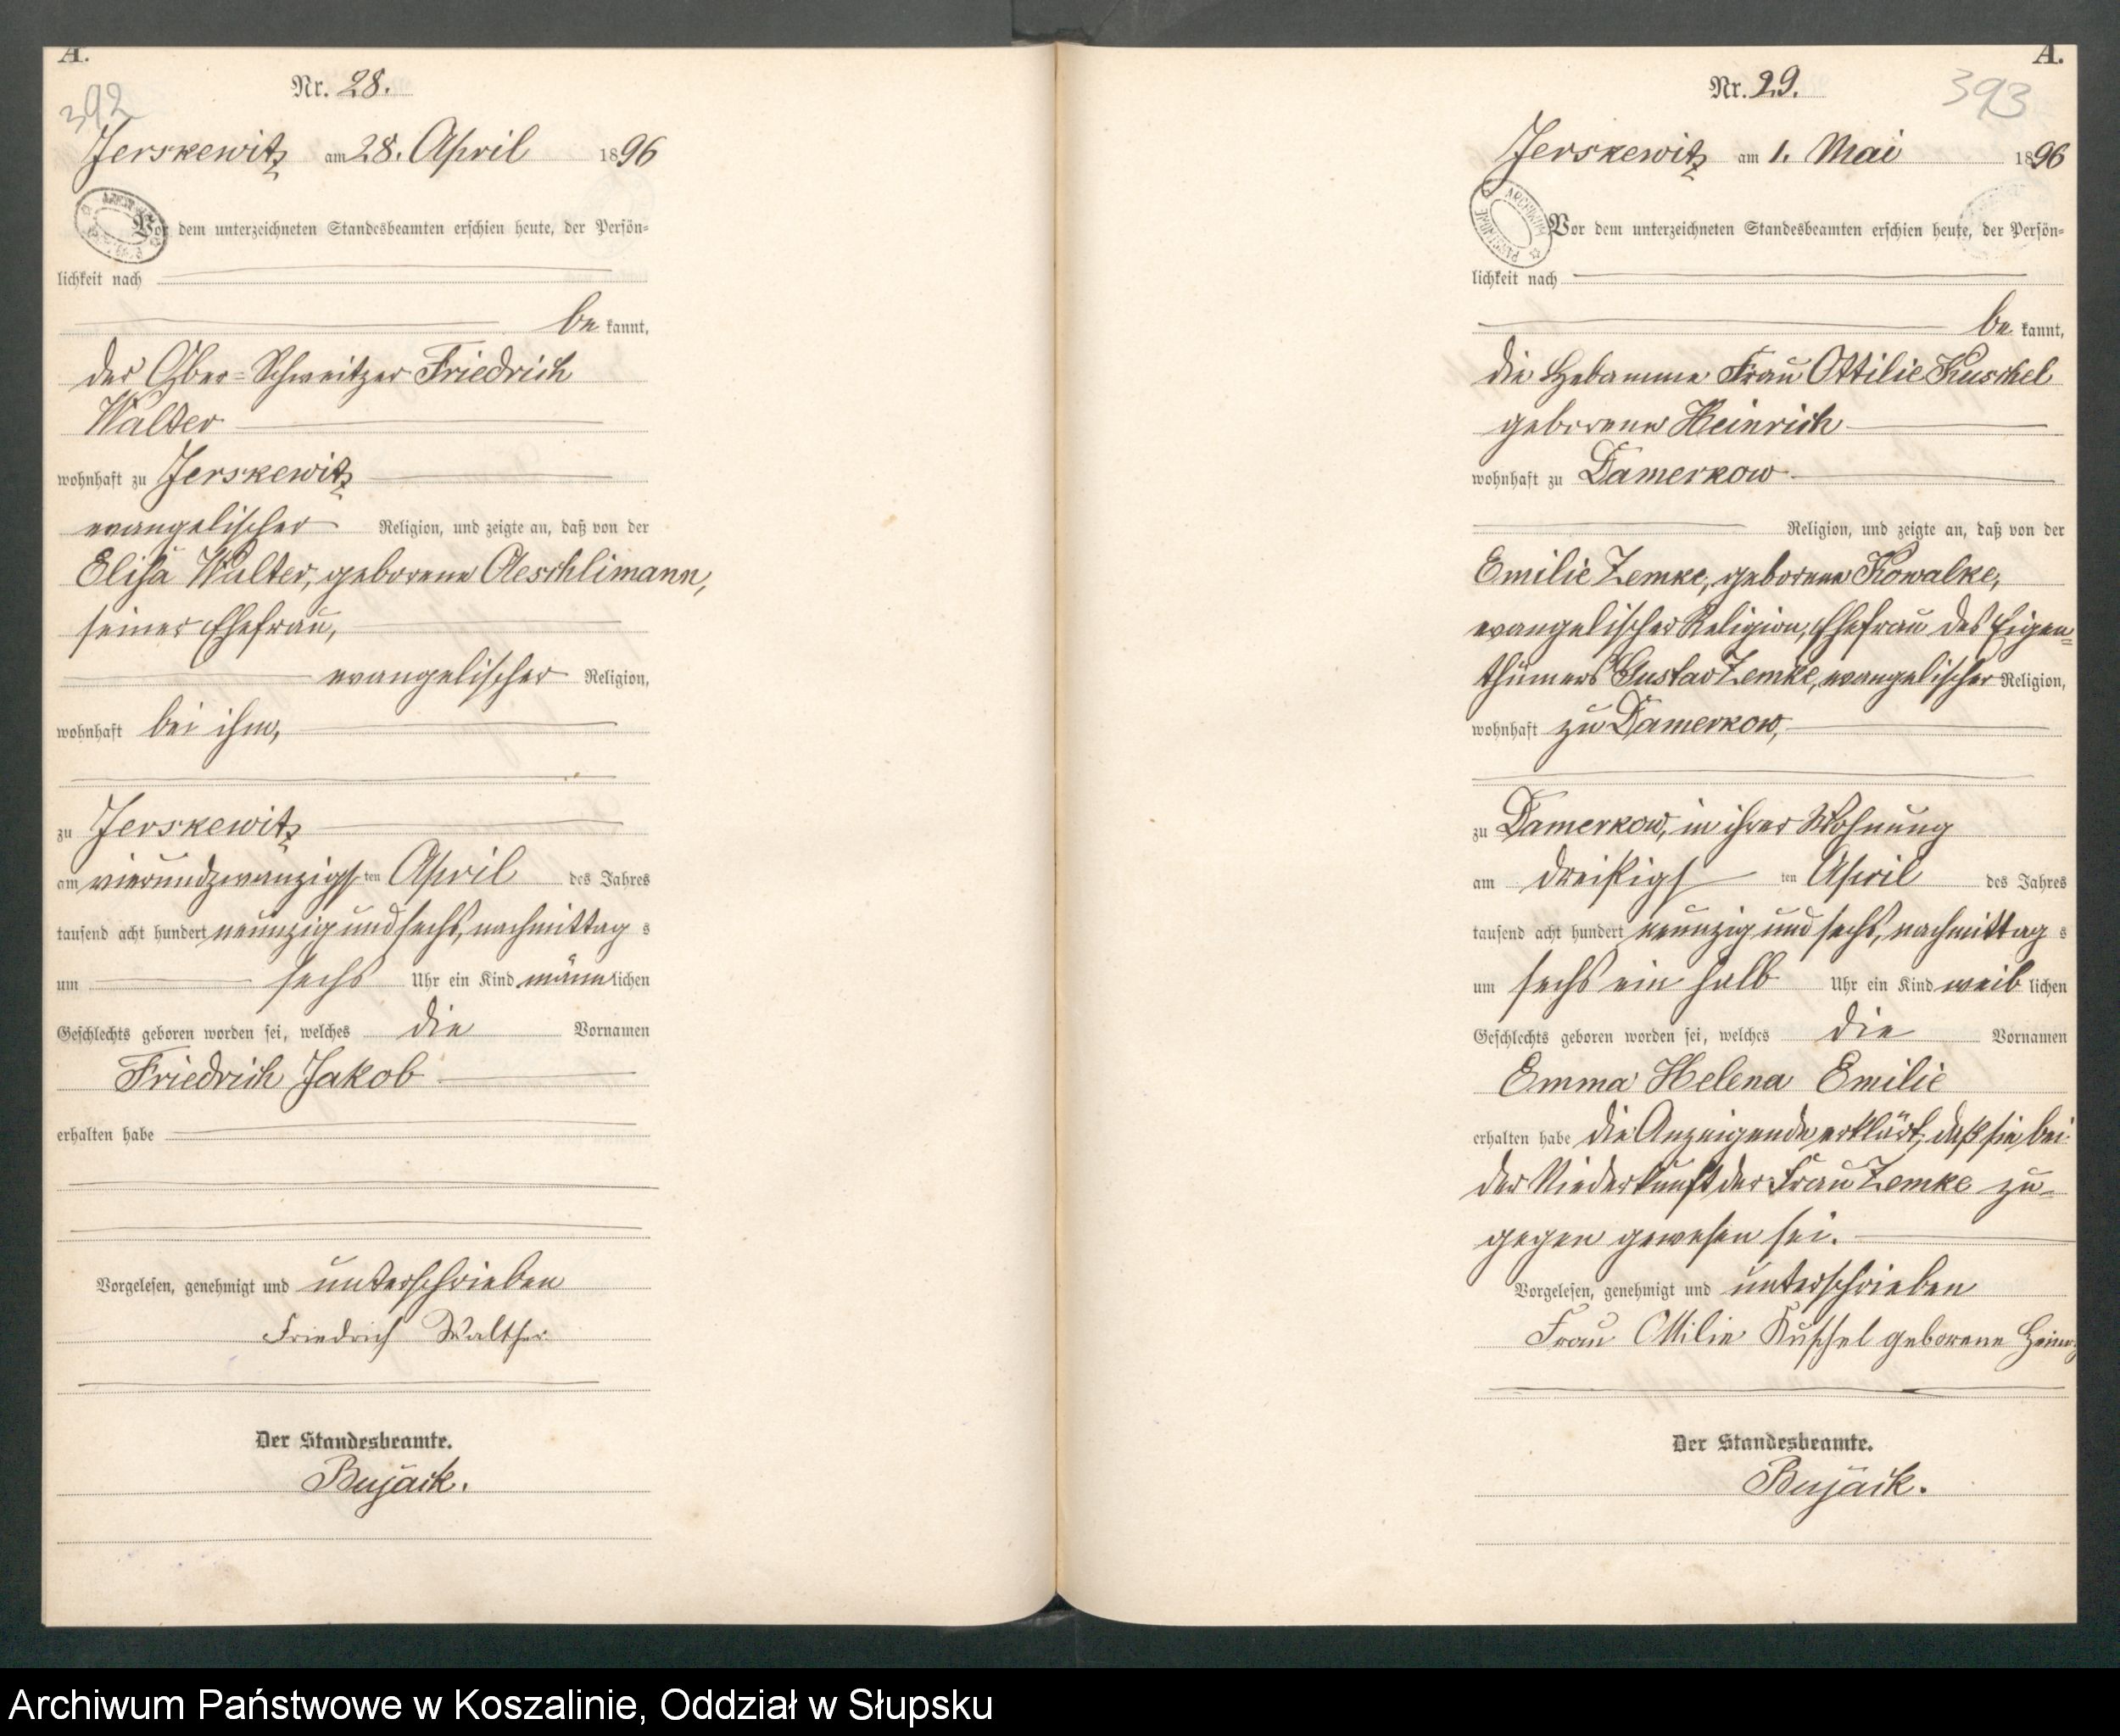 A.
392
Nr. 28.
Jerskewitz am 28. April 1896
Vor dem unterzeichneten Standesbeamten erschien heute, der Persön=
lichkeit nach
be kannt,
der Ober-Schweitzer Friedrich
Walter
wohnhaft zu Jerskewitz
evangelischer Religion, und zeigte an, daß von der
Elisa Walter, geborene Aeschlimann,
seiner Ehefrau,
evangelischer Religion,
wohnhaft bei ihm,
zu Jerskewitz
am vierundzwanzigsten April des Jahres
tausend acht hundert neunzig und sechs, nachmittags
um sechs Uhr ein Kind männlichen
Geschlechts geboren worden sei, welches die Vornamen
Friedrich Jakob
erhalten habe
Vorgelesen, genehmigt und unterschrieben
Friedrich Walther
Der Standesbeamte.
Bujack.
A.
393
Nr. 29.
Jerskewitz am 1. Mai 1896
ARCHIWUM PAŃSTWOWE
Vor dem unterzeichneten Standesbeamten erschien heute, der Persön=
lichkeit nach
be kannt,
die Hebamme Frau Ottilie Kuschel
geborene Heinrich
wohnhaft zu Damerkow
Religion, und zeigte an, daß von der
Emilie Zemke, geborene Kowalke,
evangelischer Religion, Ehefrau des Eigen=
thümers Gustav Zemke, evangelischer Religion,
wohnhaft zu Damerkow,
zu Damerkow, in ihrer Wohnung
am dreißigsten April des Jahres
tausend acht hundert neunzig und sechs, nachmittags
um sechs ein halb Uhr ein Kind weiblichen
Geschlechts geboren worden sei, welches die Vornamen
Emma Helena Emilie
erhalten habe die Anzeigende erklärt, daß sie bei
der Niederkunft der Frau Zemke zu-
gegen gewesen sei.
Vorgelesen, genehmigt und unterschrieben
Frau Ottilie Kuschel geborene
Der Standesbeamte.
Bujack.
Archiwum Państwowe w Koszalinie, Oddział w Słupsku